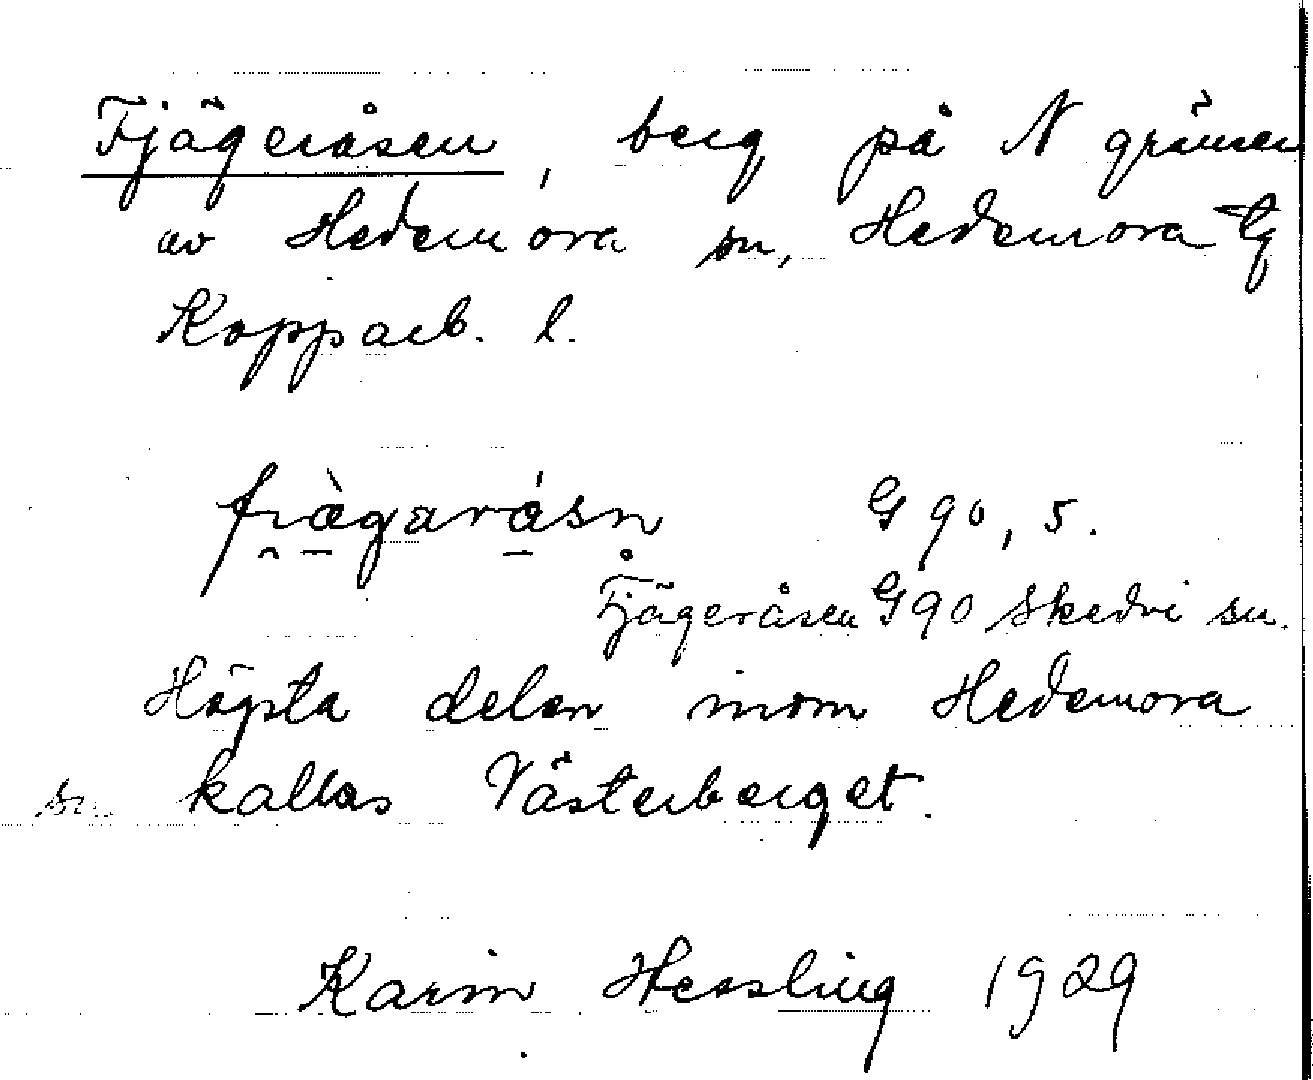 Fjägeråsen, berg på N gränsen
av Hedemora sn, Hedemora tg
Kopparb. l.
fi̯æ̀garásn̥ G 90, 5.
Fjägeråsen G90 Skedvi sn.
Högsta delen inom Hedemora
sn kallas Västerberget.
Karin Hessling 1929